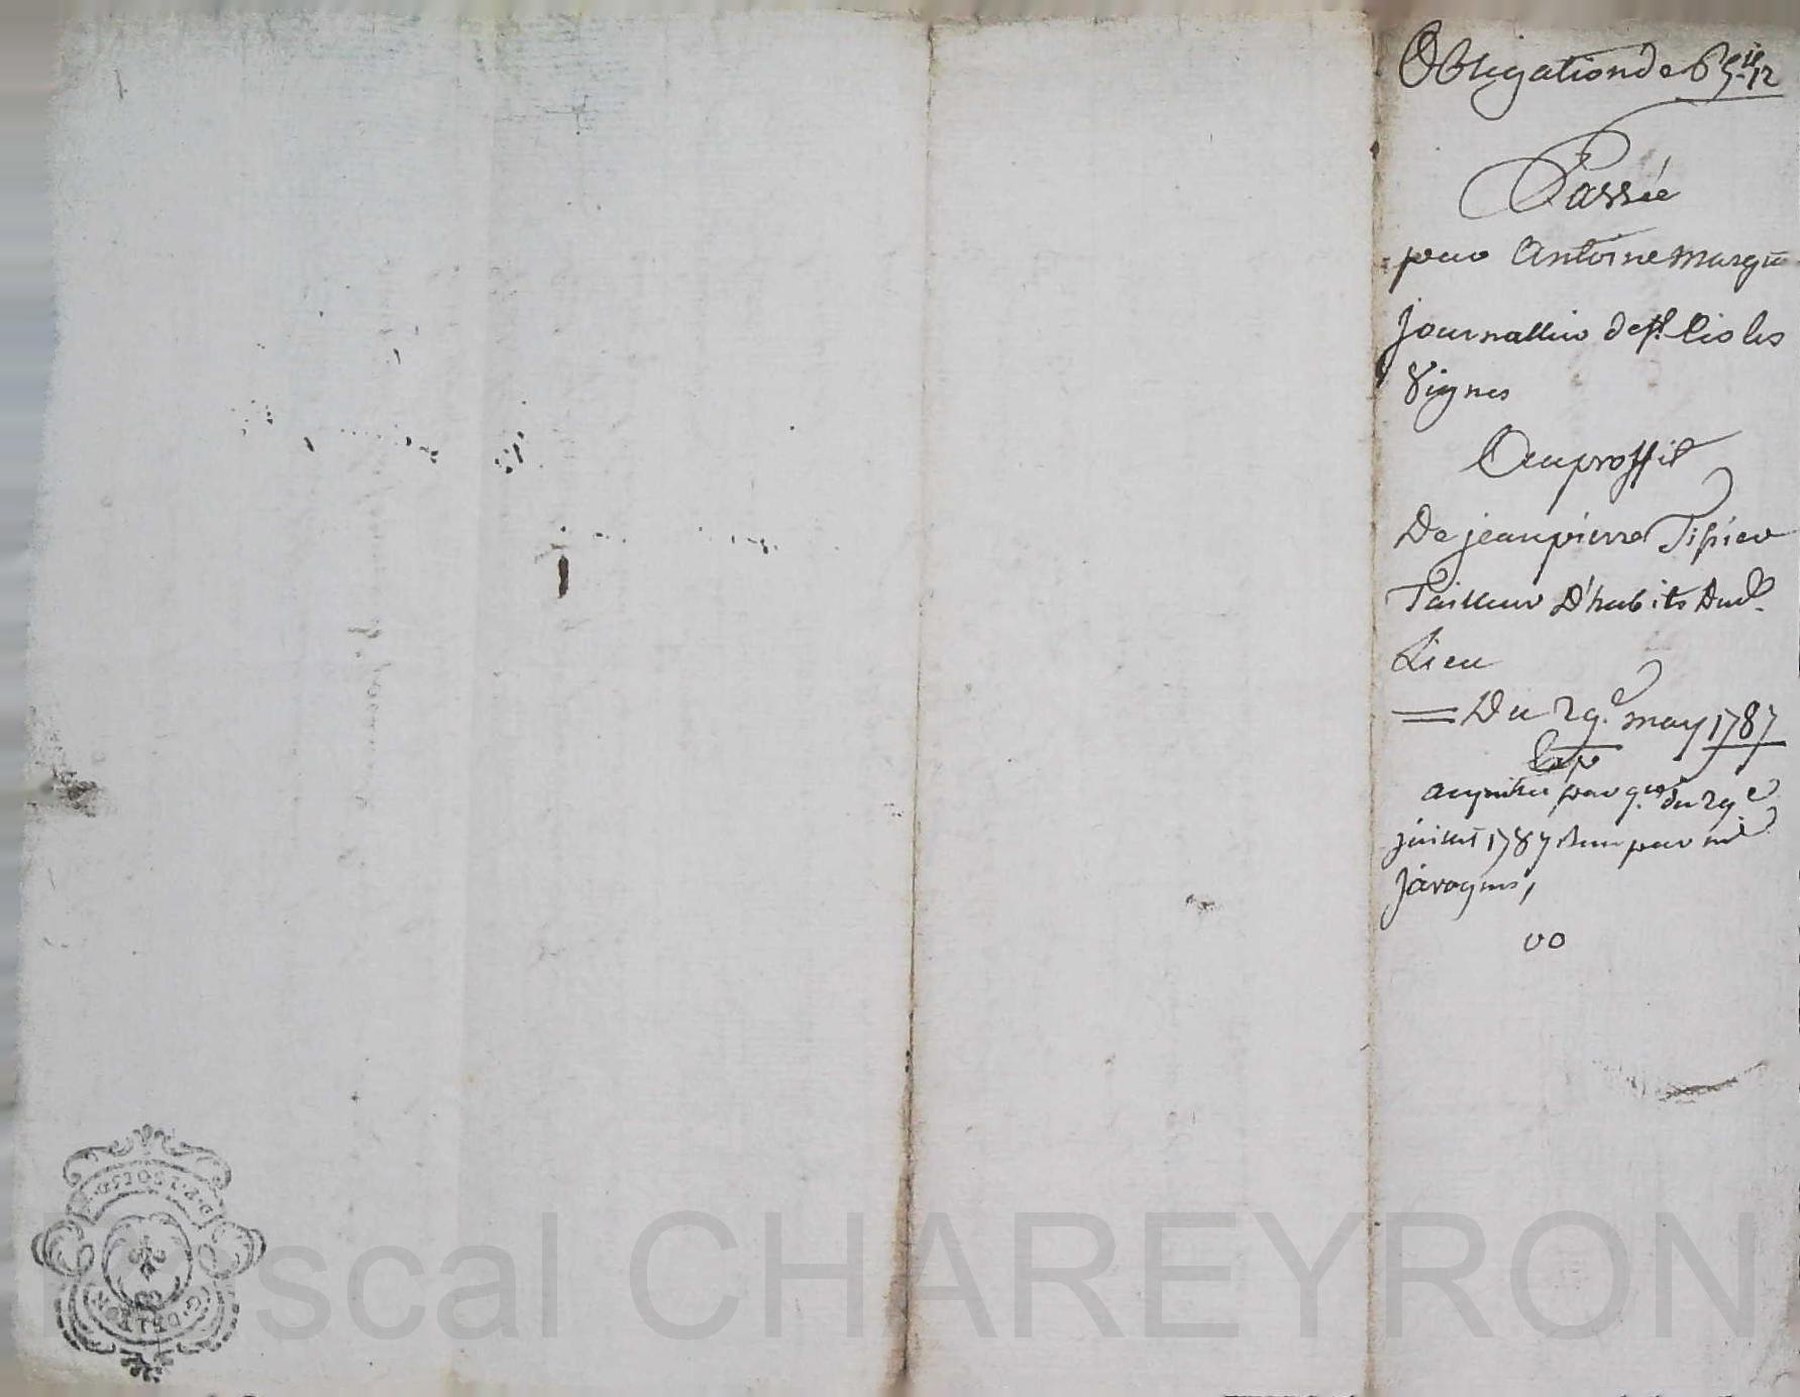 Obligation de 65
Passée
par Antoine
journallier de st. Cir les
Vignes
Au proffit
De jean pierre Tissier
Tailleur D'habits Dud.
Lieu
= Du 29.e may 1787
Exp
acquittée par q.ce du 29e
juillet 1787 Reçue par me
javogues,
Pascal CHAREYRON